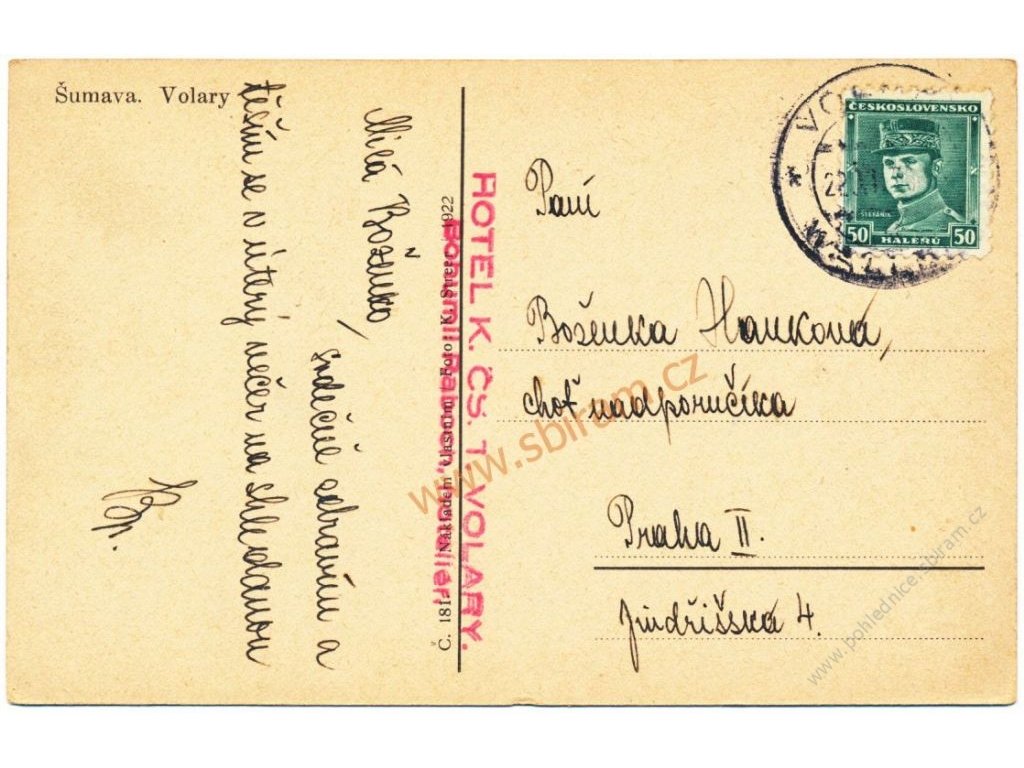 Šumava. Volary
Milá Boženko,
srdečně zdravím a
těším se v úterý večer na shledanou
HOTEL K. ČS. T. VOLARY.
Bohumil
hotelier,
Č. 181 Nákladem vlastním. Foto K. 1922
ČESKOSLOVENSKO
ŠTEFÁNIK
50 HALÉŘŮ 50
Paní
Boženka Hanková,
choť nadporučíka
Praha II.
Jindřišská 4.
www.sbiram.cz
www.pohlednice.sbiram.cz